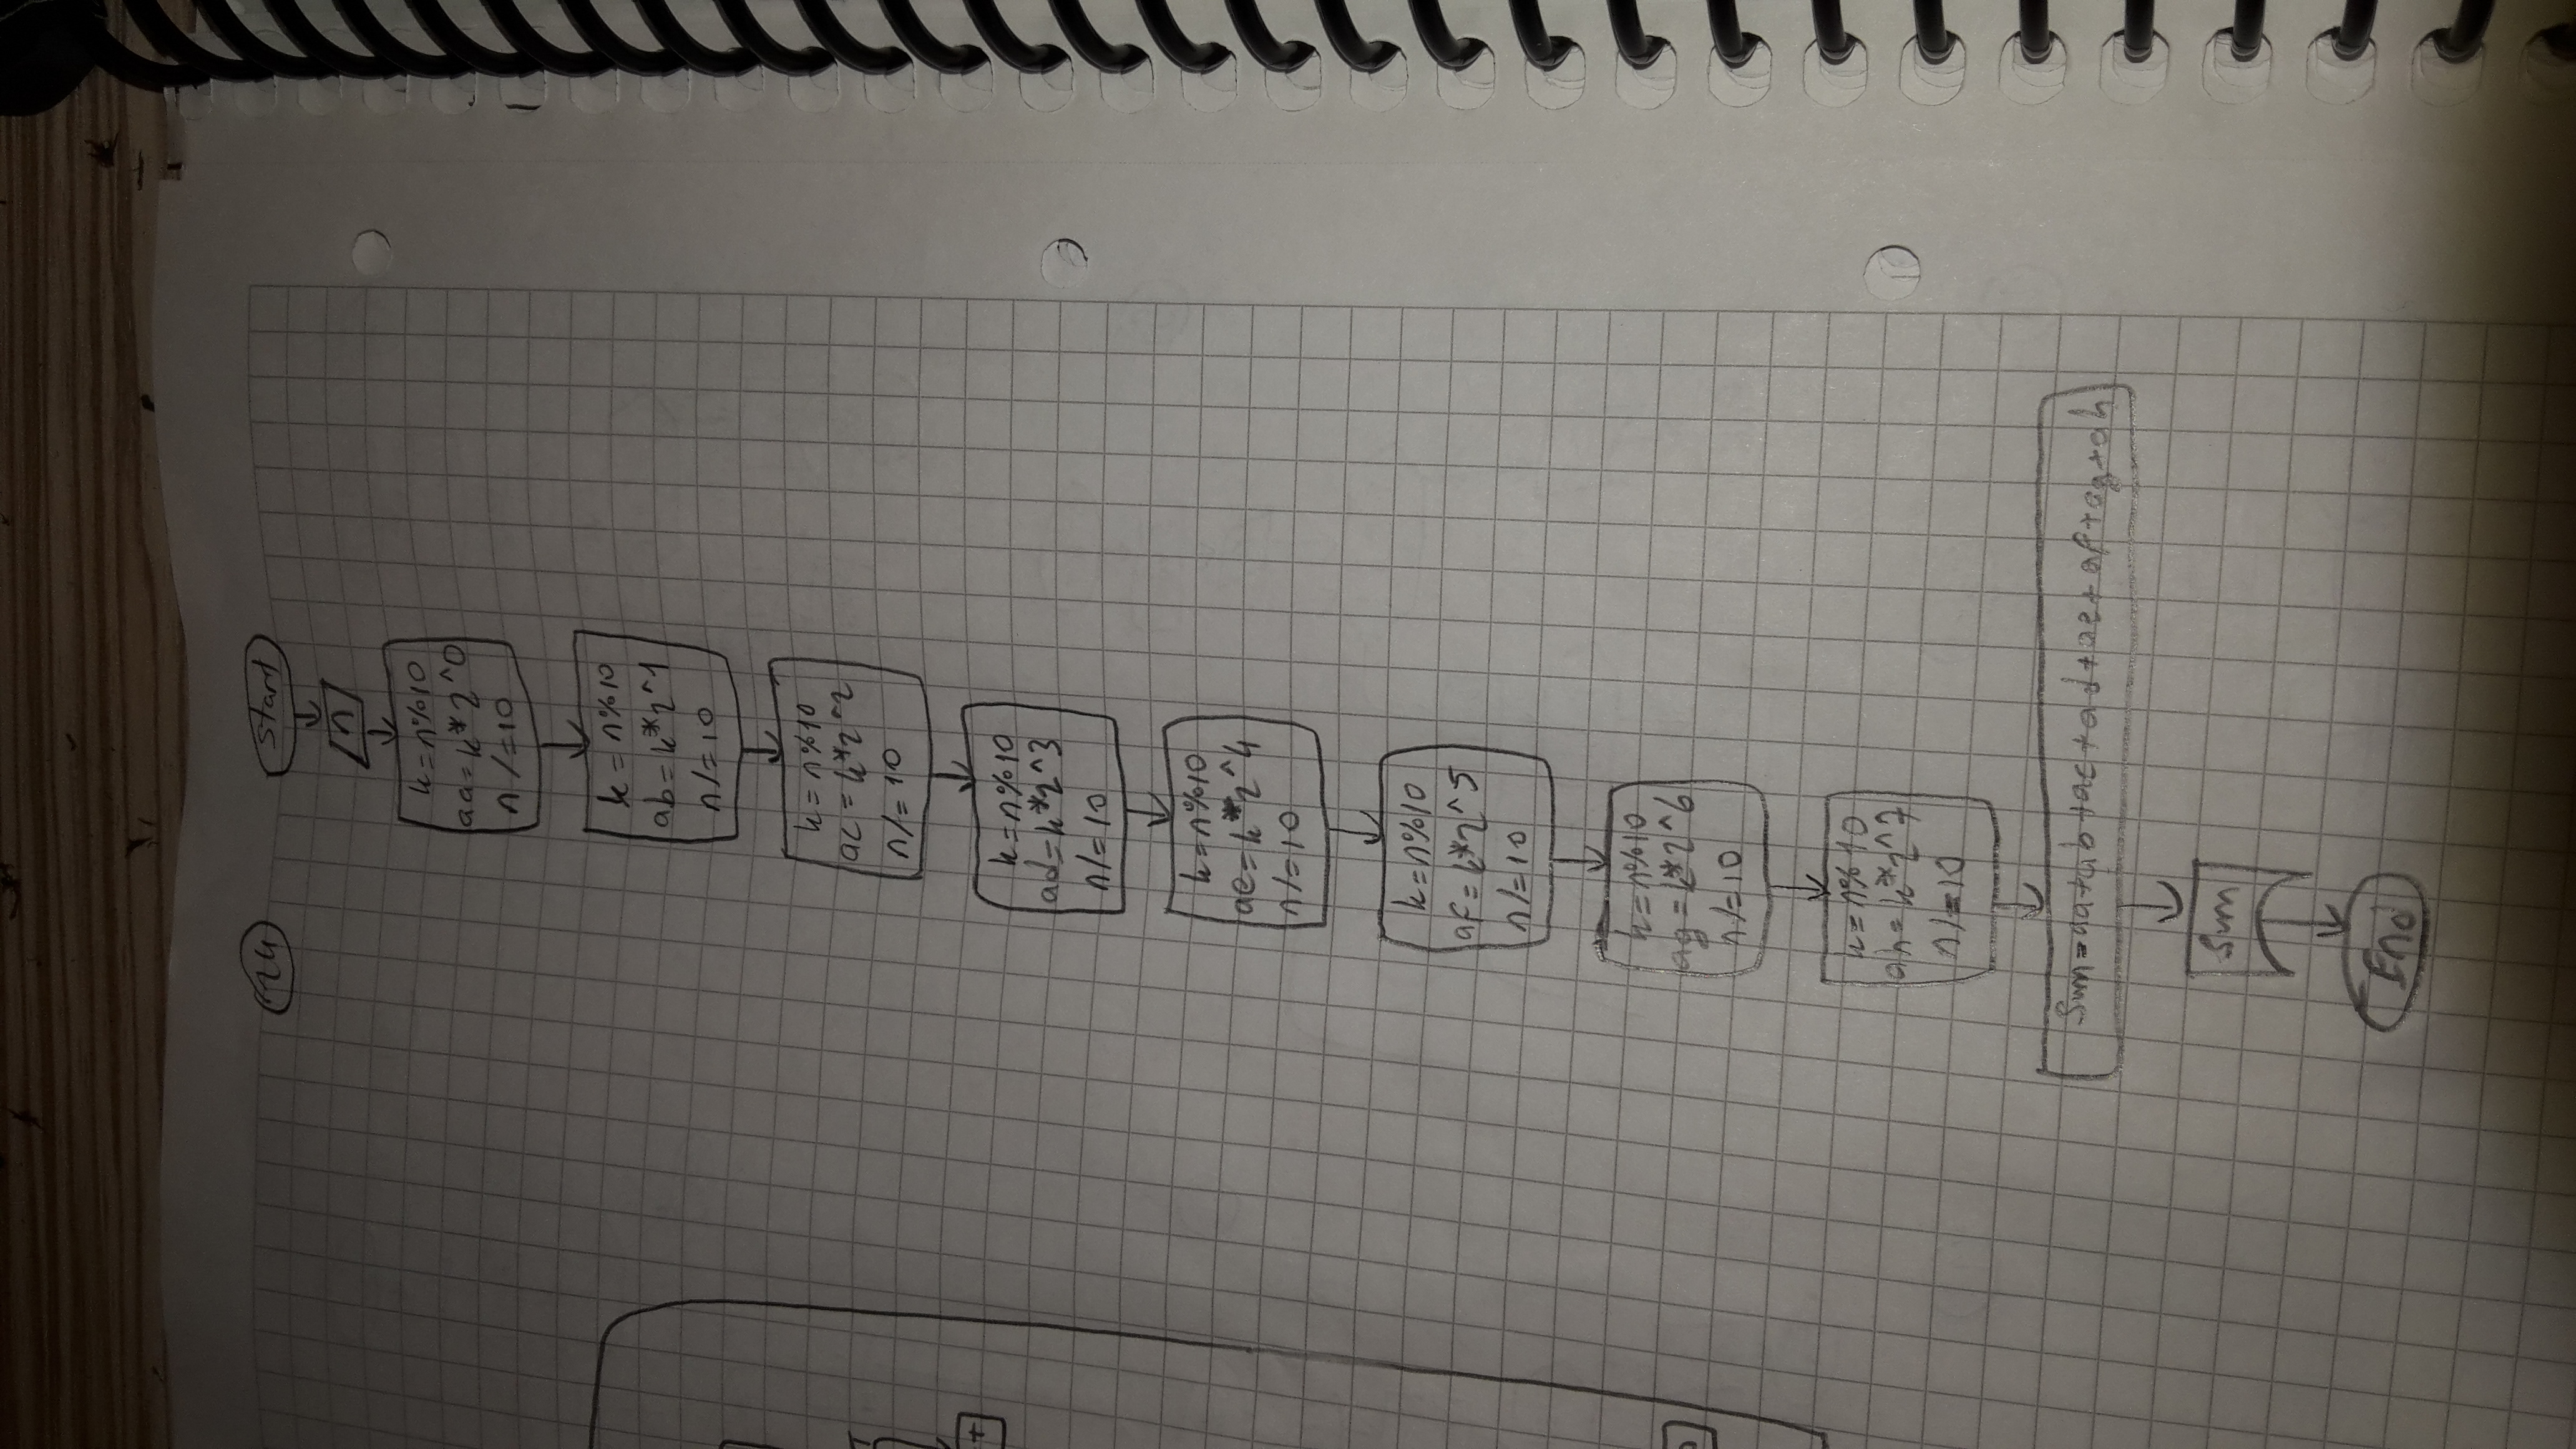 24
Start
n
k=n%10
aa=k*2^0
n/=10
k=n%10
ab=k*2^1
n/=10
k=n%10
ac=k*2^2
n/=10
k=n%10
ad=k*2^3
n/=10
k=n%10
ae=k*2^4
n/=10
k=n%10
af=k*2^5
n/=10
k=n%10
ag=k*2^6
n/=10
k=n%10
ah=k*2^7
n/=10
Sum=aa+ab+ac+ad+ae+af+ag+ah
Sum
End
+